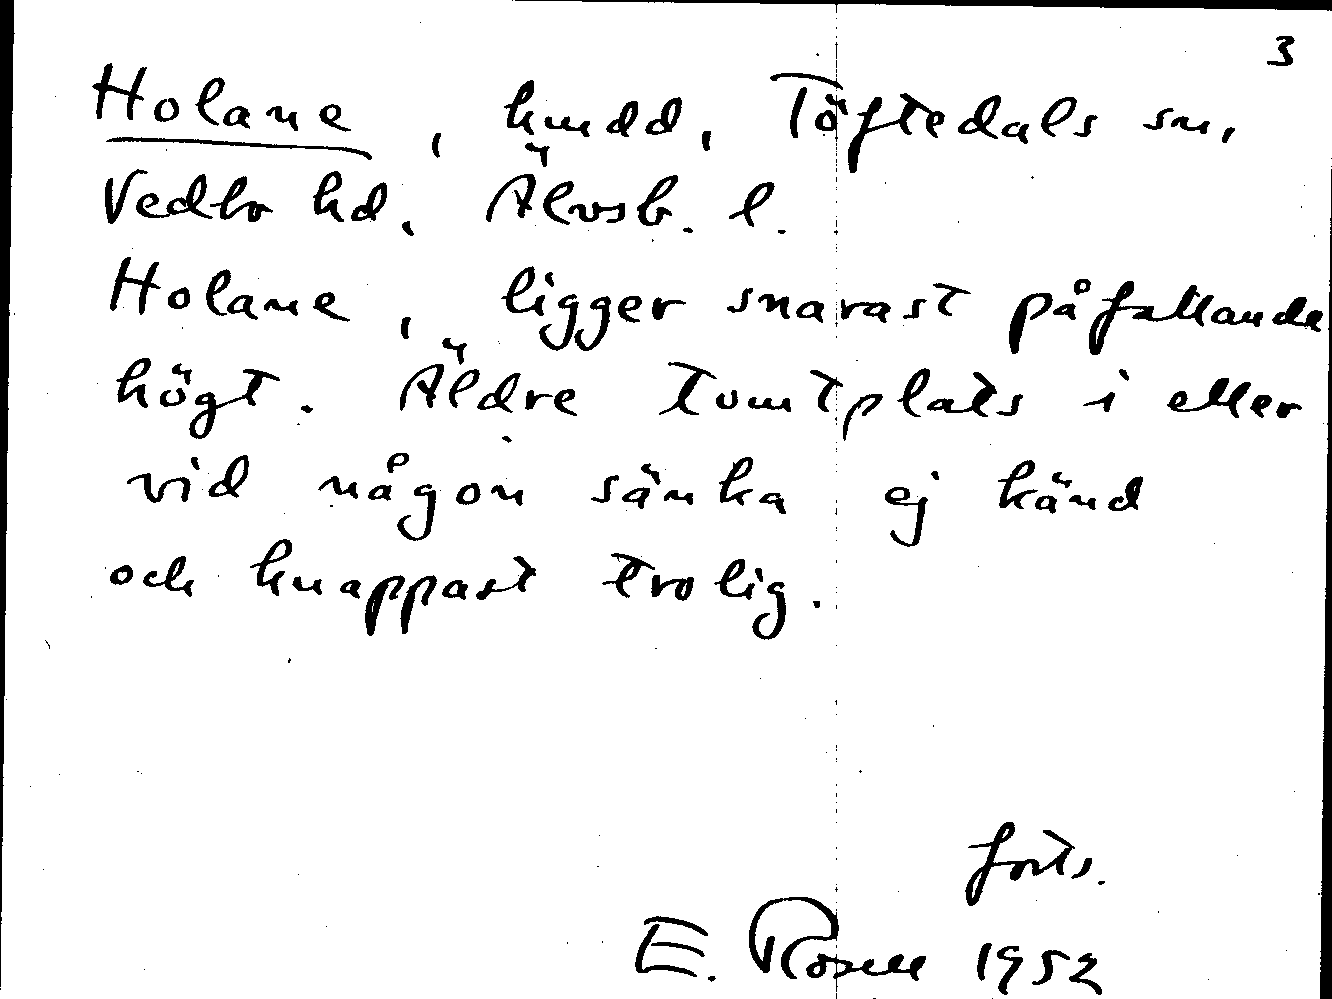 3
Holane, hmdd, Töftedals sn,
Vedbo hd, Älvsb. l.
Holane, ligger snarast påfallande
högt. Äldre tomtplats i eller
vid någon sänka ej känd
och knappast trolig.
forts.
E. Rosell 1952